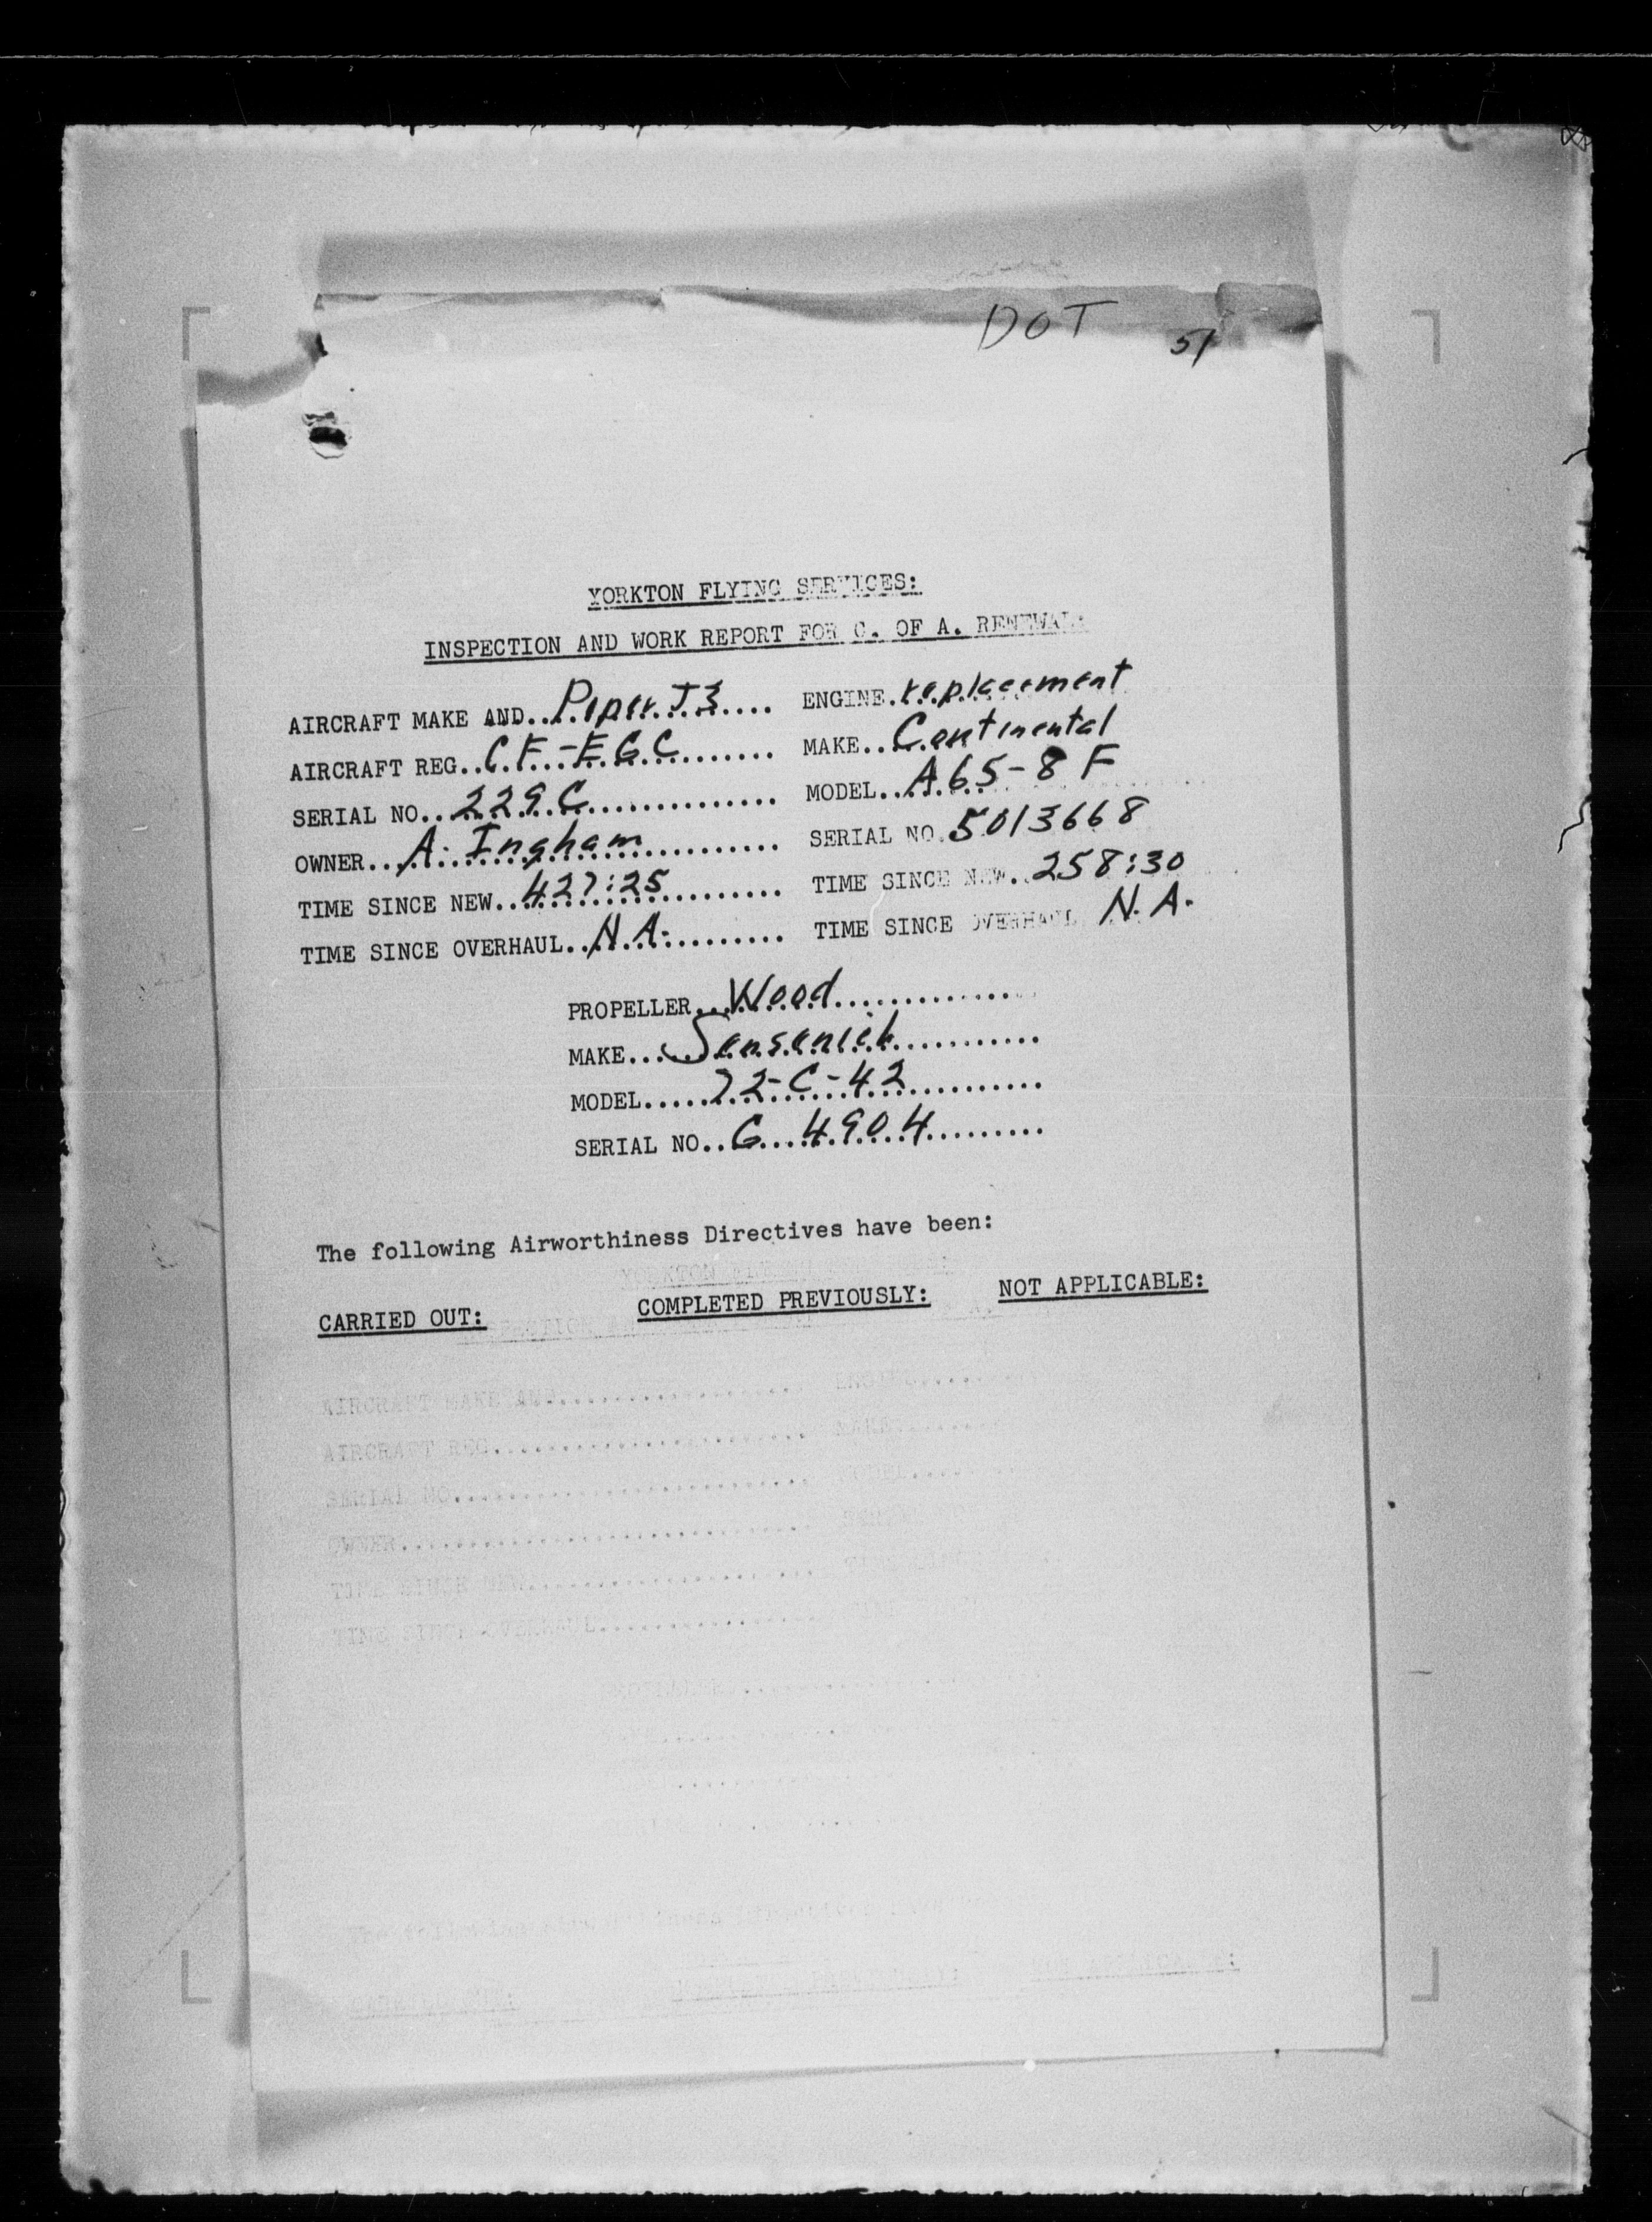 DOT
51
YORKTON FLYING SERVICES:
INSPECTION AND WORK REPORT FOR C. OF A. RENEWAL:
AIRCRAFT MAKE AND...Piper J3.... ENGINE.replacement
AIRCRAFT REG..CF-EGC....... MAKE..Continental
SERIAL NO..229C.............. MODEL..A65-8F
OWNER...A. Ingham.......... SERIAL NO.5013668
TIME SINCE NEW..427:25......... TIME SINCE NEW..258:30
TIME SINCE OVERHAUL..N.A.......... TIME SINCE OVERHAUL N.A.
PROPELLER..Wood..............
MAKE....Sensenich...........
MODEL.....72-C-42..........
SERIAL NO..G...4904.........
The following Airworthiness Directives have been:
CARRIED OUT: COMPLETED PREVIOUSLY: NOT APPLICABLE:
AIRCRAFT MAKE AND....................
AIRCRAFT REG....................... MAKE........
SERIAL NO..........................
OWNER..............................
TIME SINCE NEW.....................
TIME SINCE OVERHAUL................